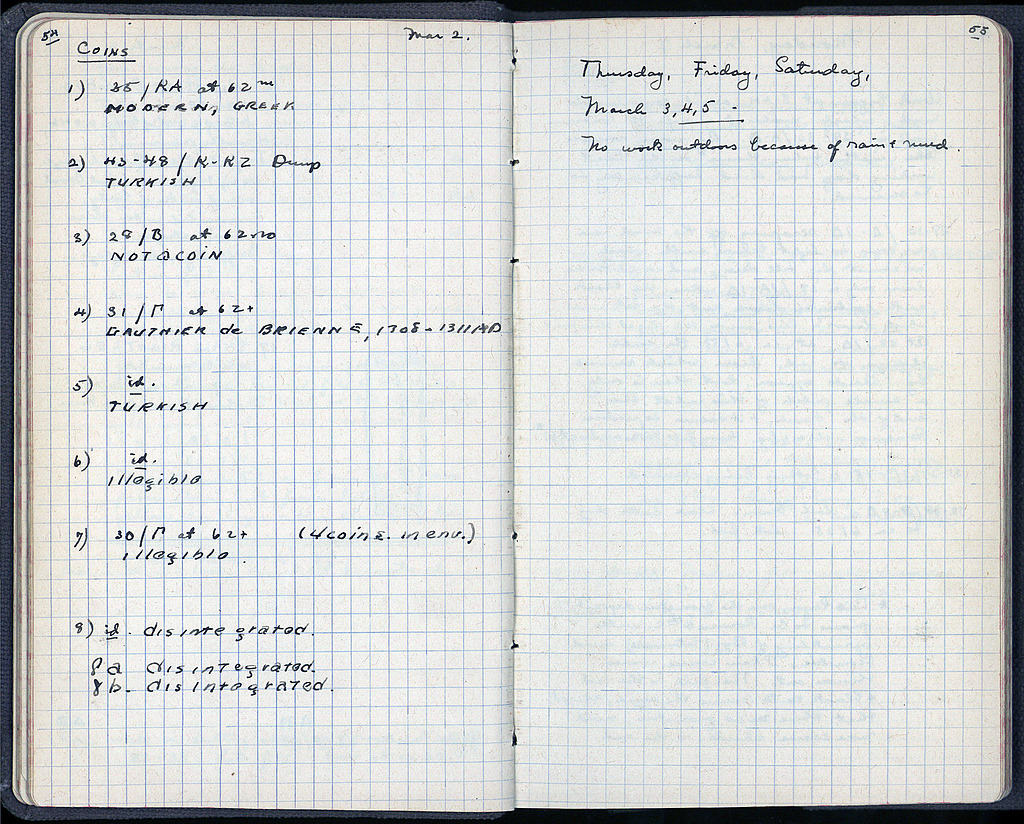 54
Mar 2.
COINS
1) 35/KA at 62m
MODERN, GREEK
2) 43-48/K-KZ Dump
TURKISH
3) 28/B at 62.70
NOT A COIN
4) 31/Γ at 62+
GAUTHIER de BRIENNE, 1308-1311 AD
5) id.
TURKISH
6) id.
illegible
7) 30/Γ at 62+ (4 coins. in env.)
illegible.
8) id. disintegrated.
8a disintegrated.
8b. disintegrated.
55
Thursday, Friday, Saturday,
March 3,4,5 -
No work outdoors because of rain & mud.